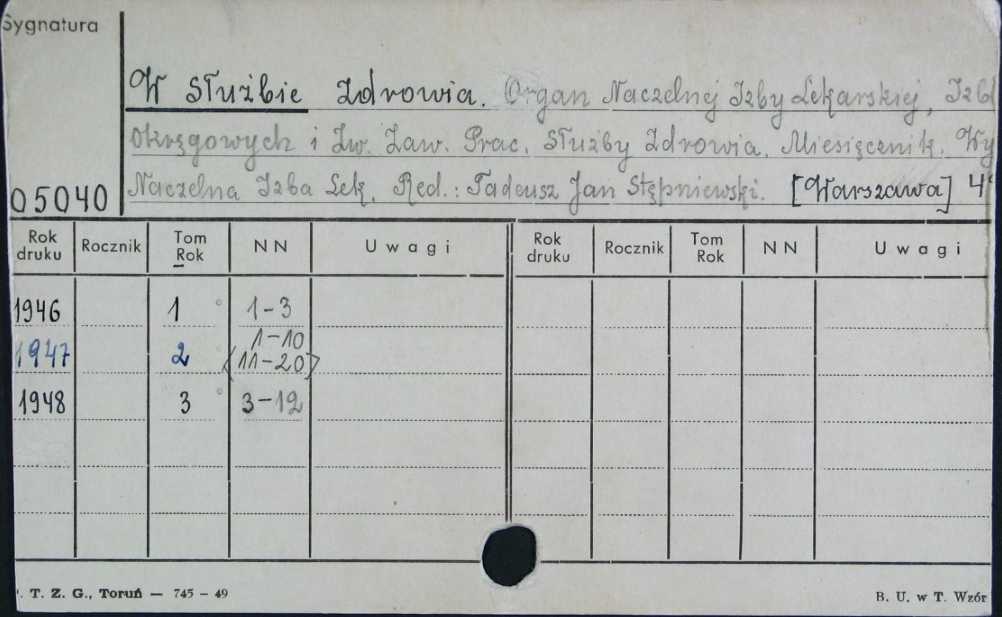 Sygnatura
W Służbie Zdrowia. Organ Naczelnej Izby Lekarskiej, Izb
Okręgowych i Zw. Zaw. Prac. Służby Zdrowia. Miesięcznik. Wy
05040 Naczelna Izba Lek. Red.: Tadeusz Jan Stępniewski. [Warszawa] 4°
Rok druku Rocznik Tom Rok NN Uwagi Rok druku Rocznik Tom Rok NN Uwagi
1946 1 1-3
1-10
1947 2 <11-20>
1948 3 3-12
. T. Z. G., Toruń — 745 - 49 B. U. w T. Wzór